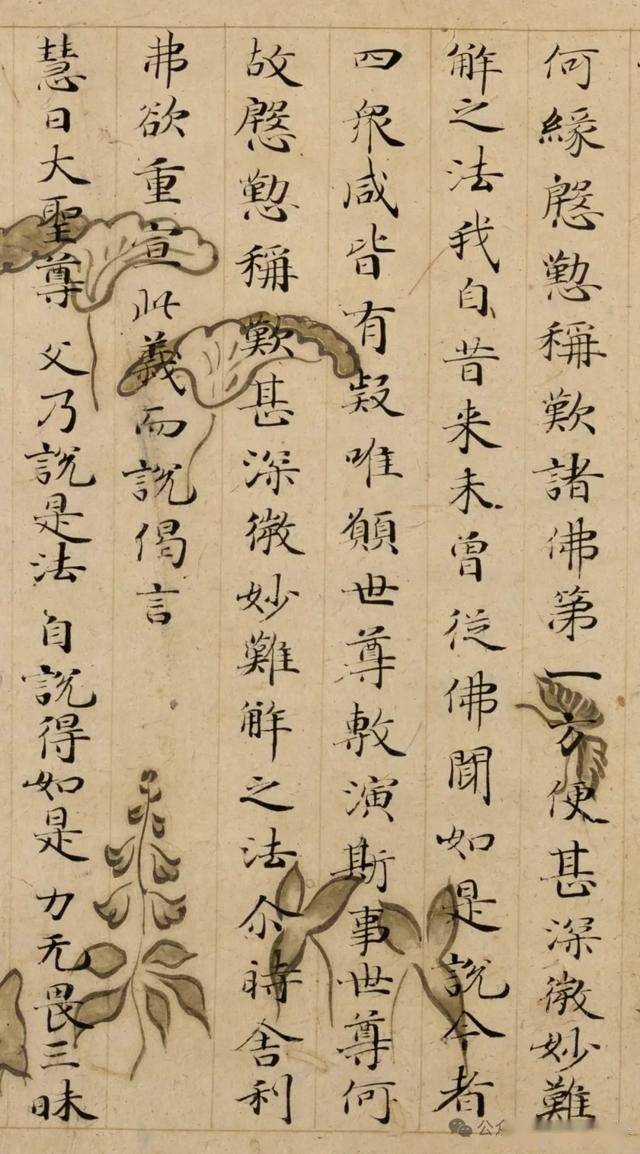 何緣慇懃稱歎諸佛第一方便甚深微妙難
解之法我自昔来未曾從佛聞如是說今者
四衆咸皆有疑唯願世尊敷演斯事世尊何
故慇懃稱歎甚深微妙難解之法尒時舍利
弗欲重宣此義而說偈言
慧日大聖尊 父乃說是法 自說得如是 力无畏三昧
公众